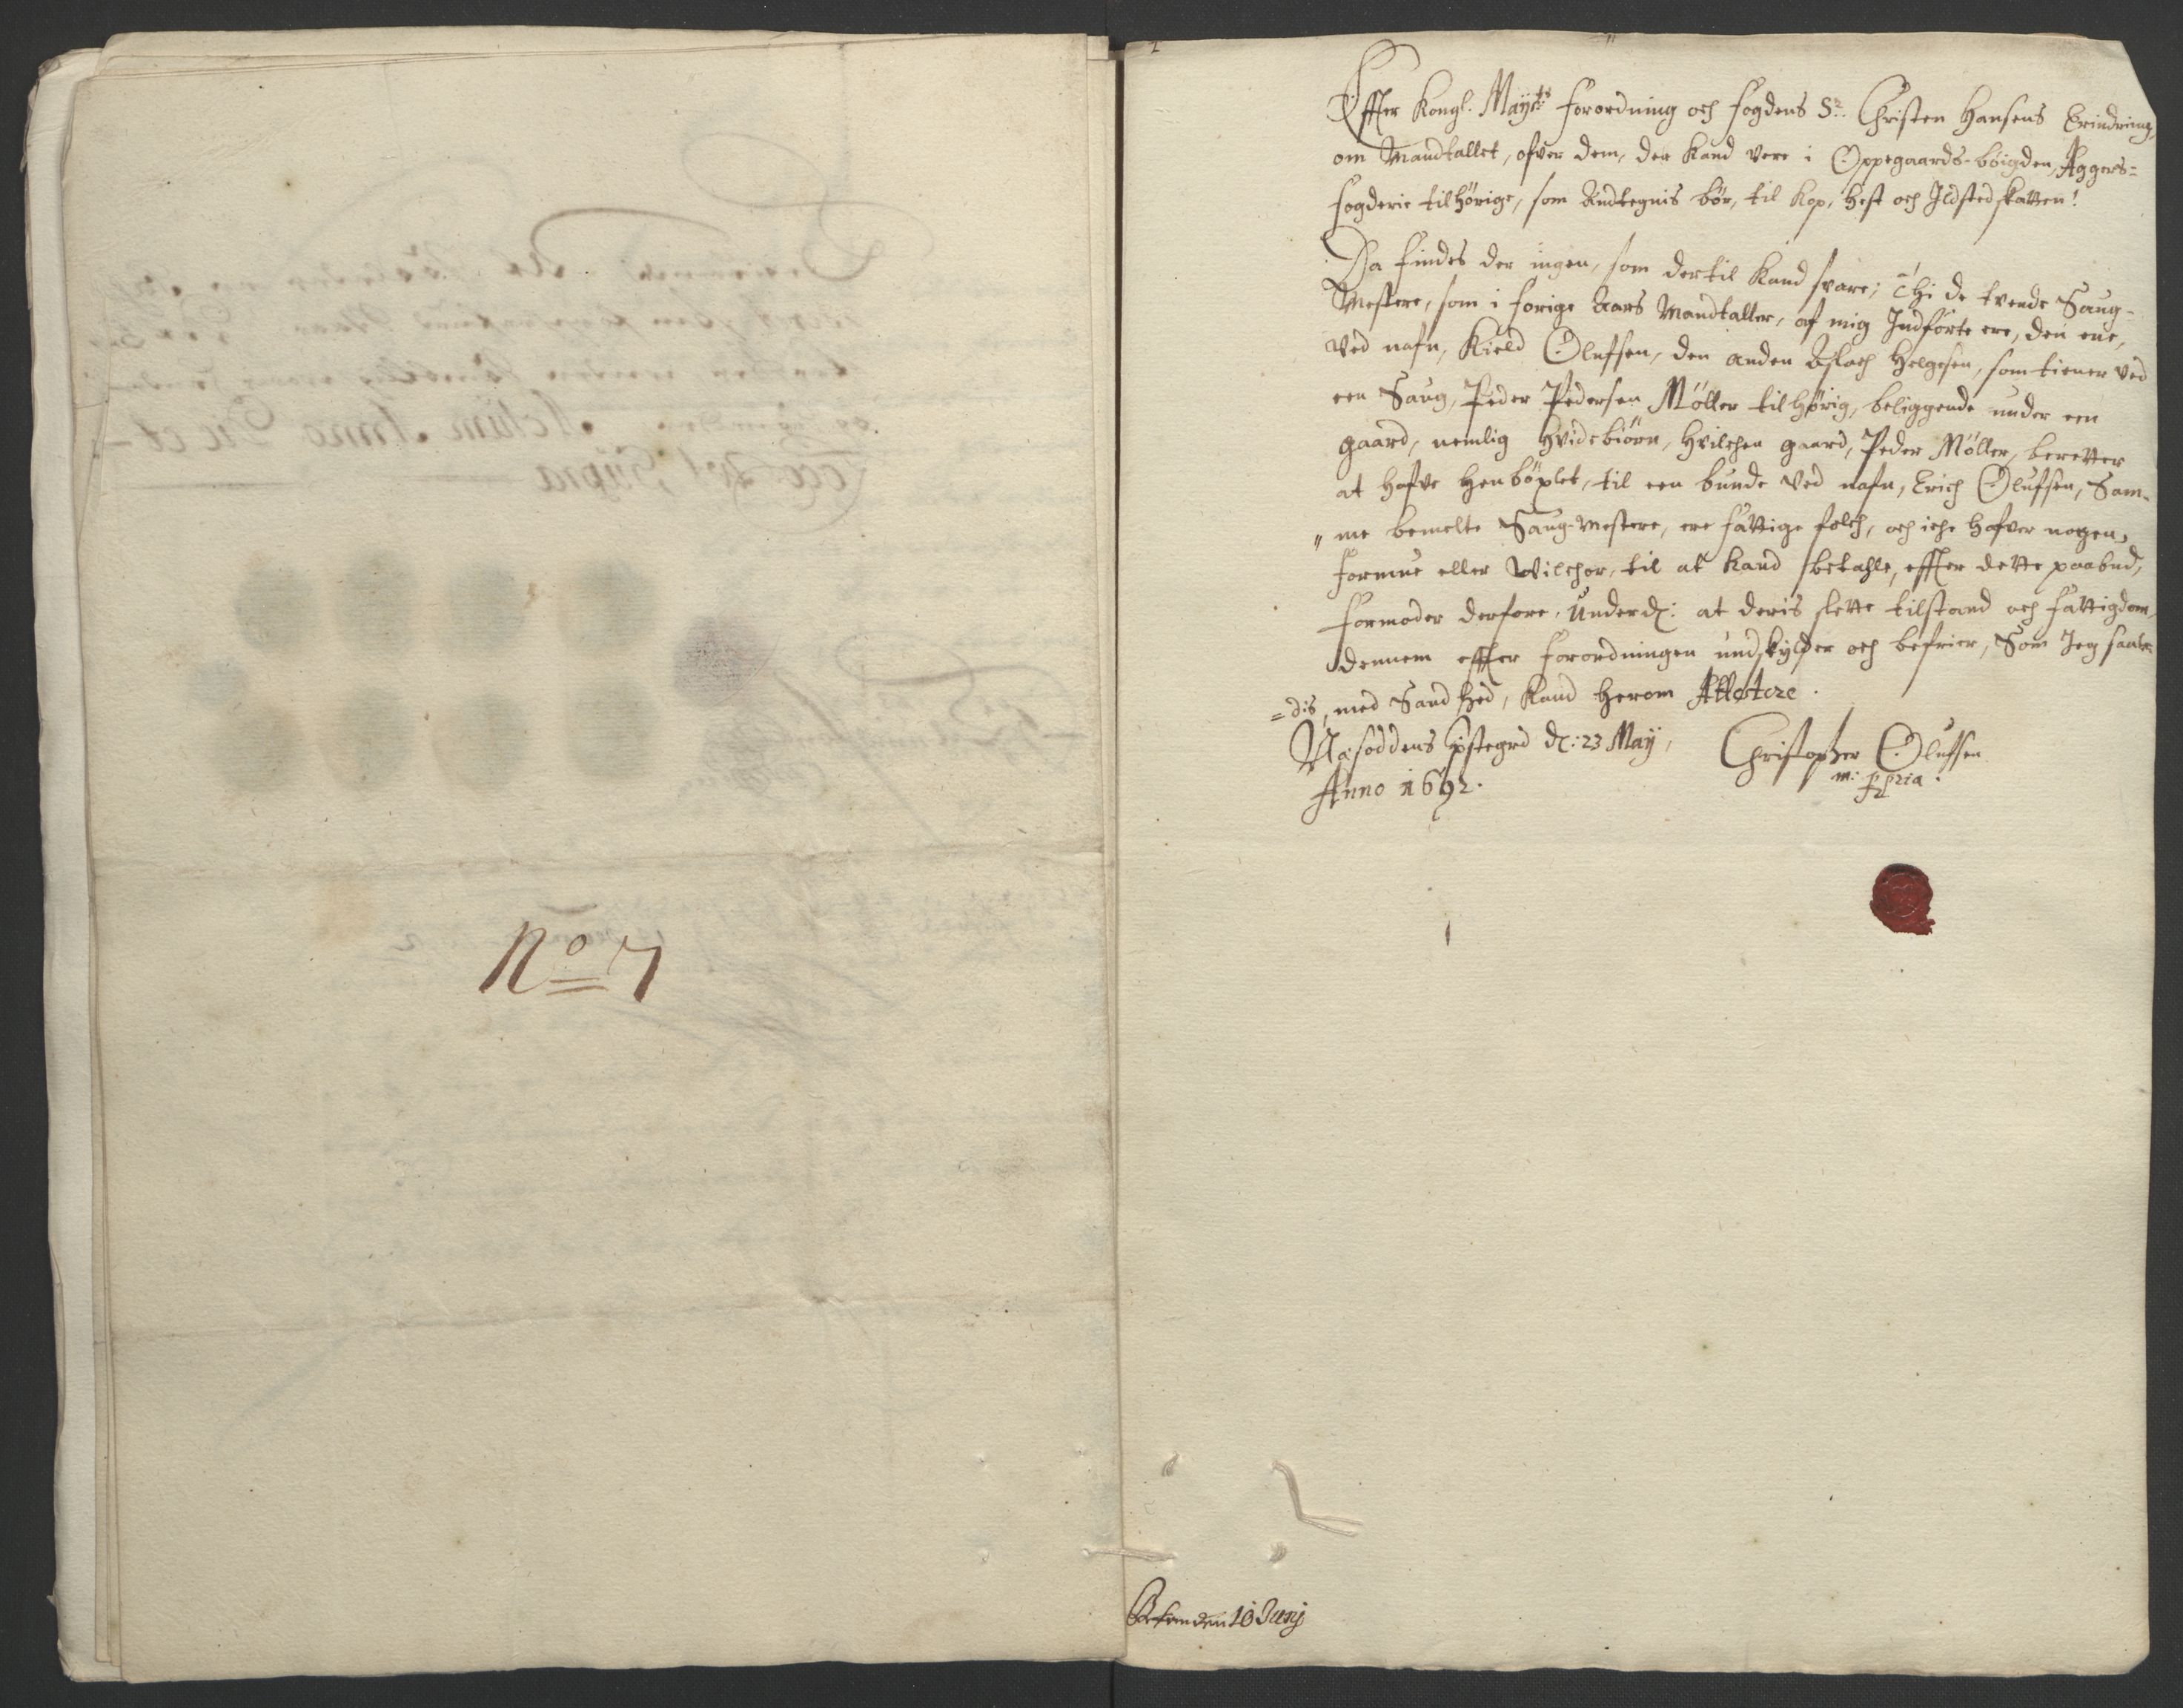 No 7
Effter Kongl. Mayts forordning och fogdens Sr. Christen Hansens Erindring,
om Mandtallet, ofver dem, der kand vere i Oppegaards-böigden, Aggers-
fogderie tilhörige, som Andtegnis bör, til Kop, hest och Ildstedskatten!
Da findes der ingen, som dertil kand svare; Thi de tvende Saug-
Mestere, som i forige Aars Mandtaller, af mig Indförte ere, den ene,
ved nafn, Kield Olufsen, den anden Aslach Helgesen, som tiener ved
een Saug, Peder Pedersen Møller tilhørig, beliggende under een
gaard, nemlig Hvidebiörn, hvilchen gaard, Peder Møller, beretter
at hafve henböxlet, til een bunde ved nafn, Erich Olufsen, Sam-
"me bemelte Saug-mestere, ere fattige folch, och iche hafver nogen,
formue eller Wilchor, til at kand betahle, effter dette paabud,
formoder derfore, Underd: at deris slette tilstand och fattigdom,
dennem effter forordningen undskylder och befrier, Som Jeg saale-
=dis, med Sandhed, kand herom Attestere.
Næsoddens Pstegrd d: 23 May,
Anno 1692.
Christopher Olufsen
m: ppria.
den 10 Junij